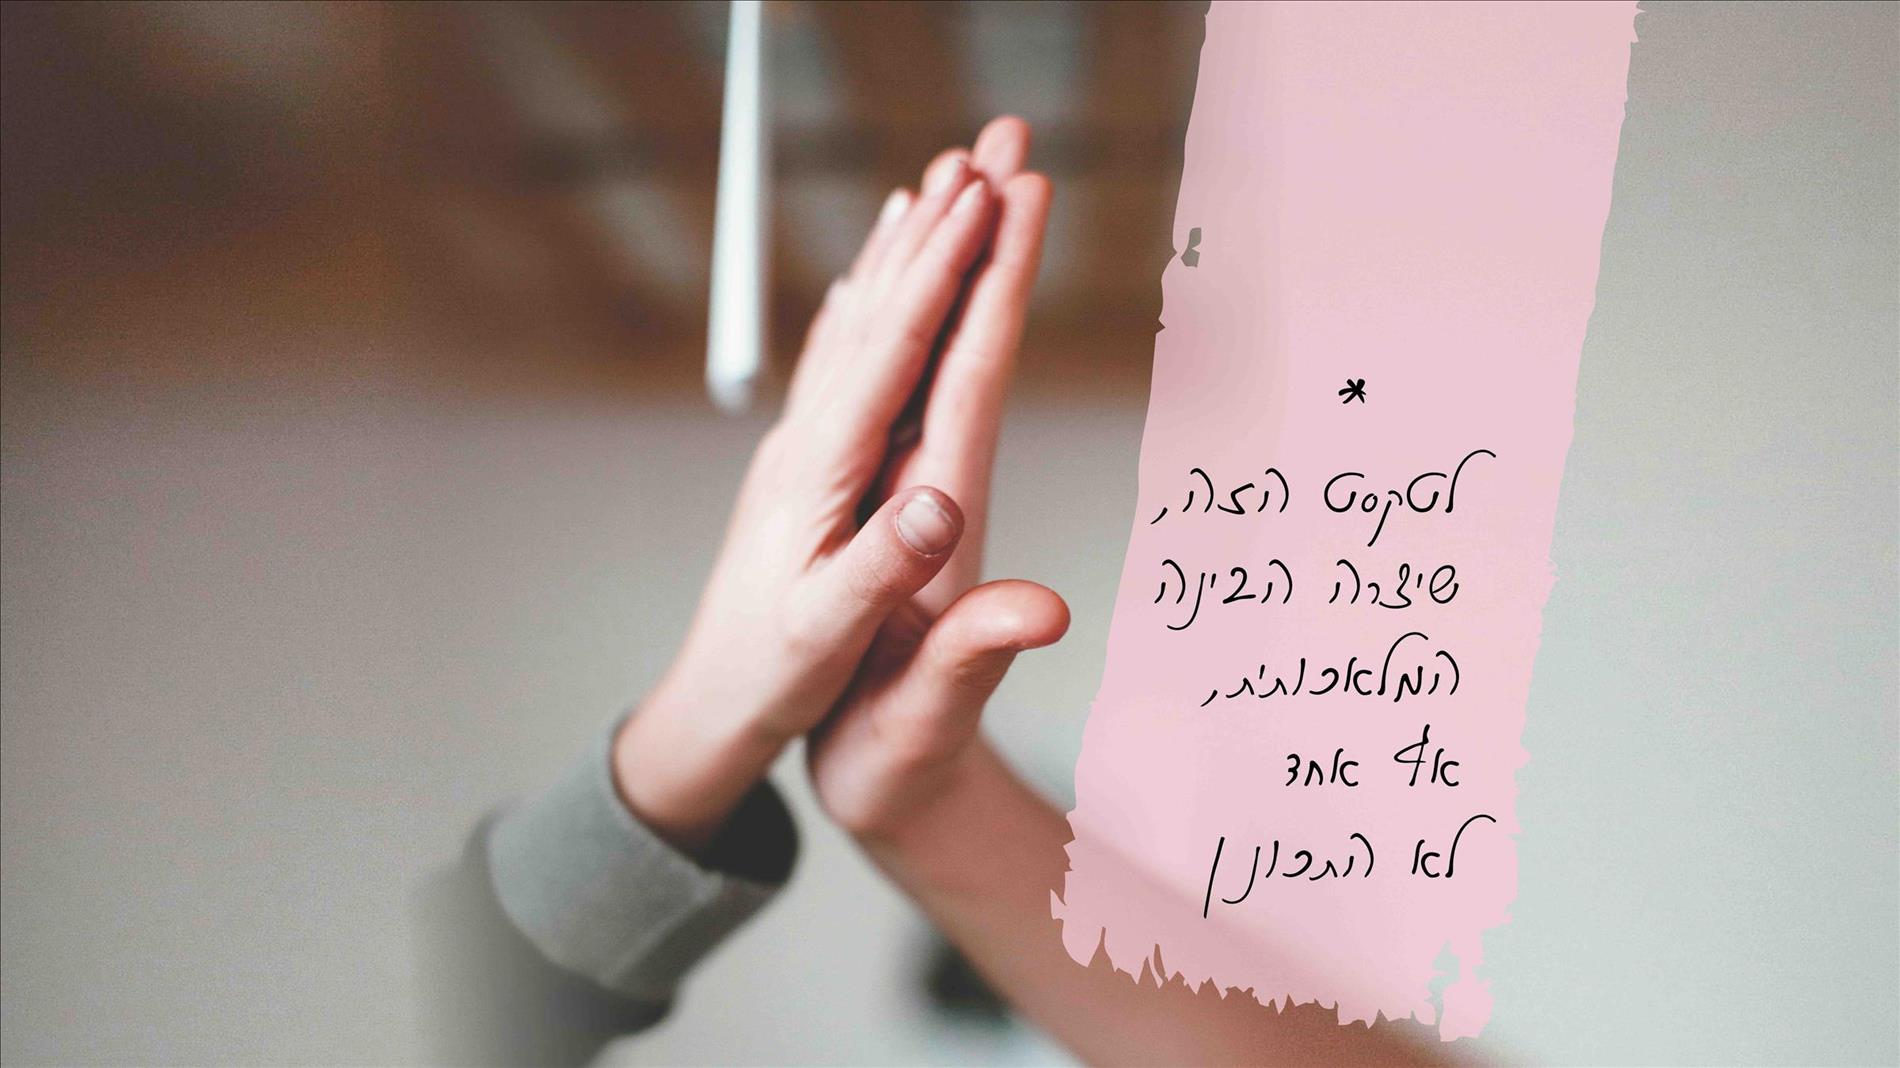 *
לטקסט הזה,
שיצרה הבינה
המלאכותית,
אף אחד
לא התכוון